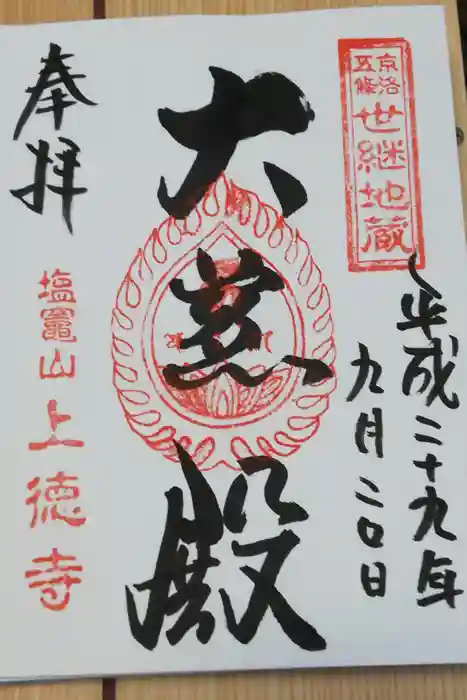 京洛
五條
世継地蔵
平成二十九年
九月二〇日
大慈殿
奉拝
塩竈山
上徳寺